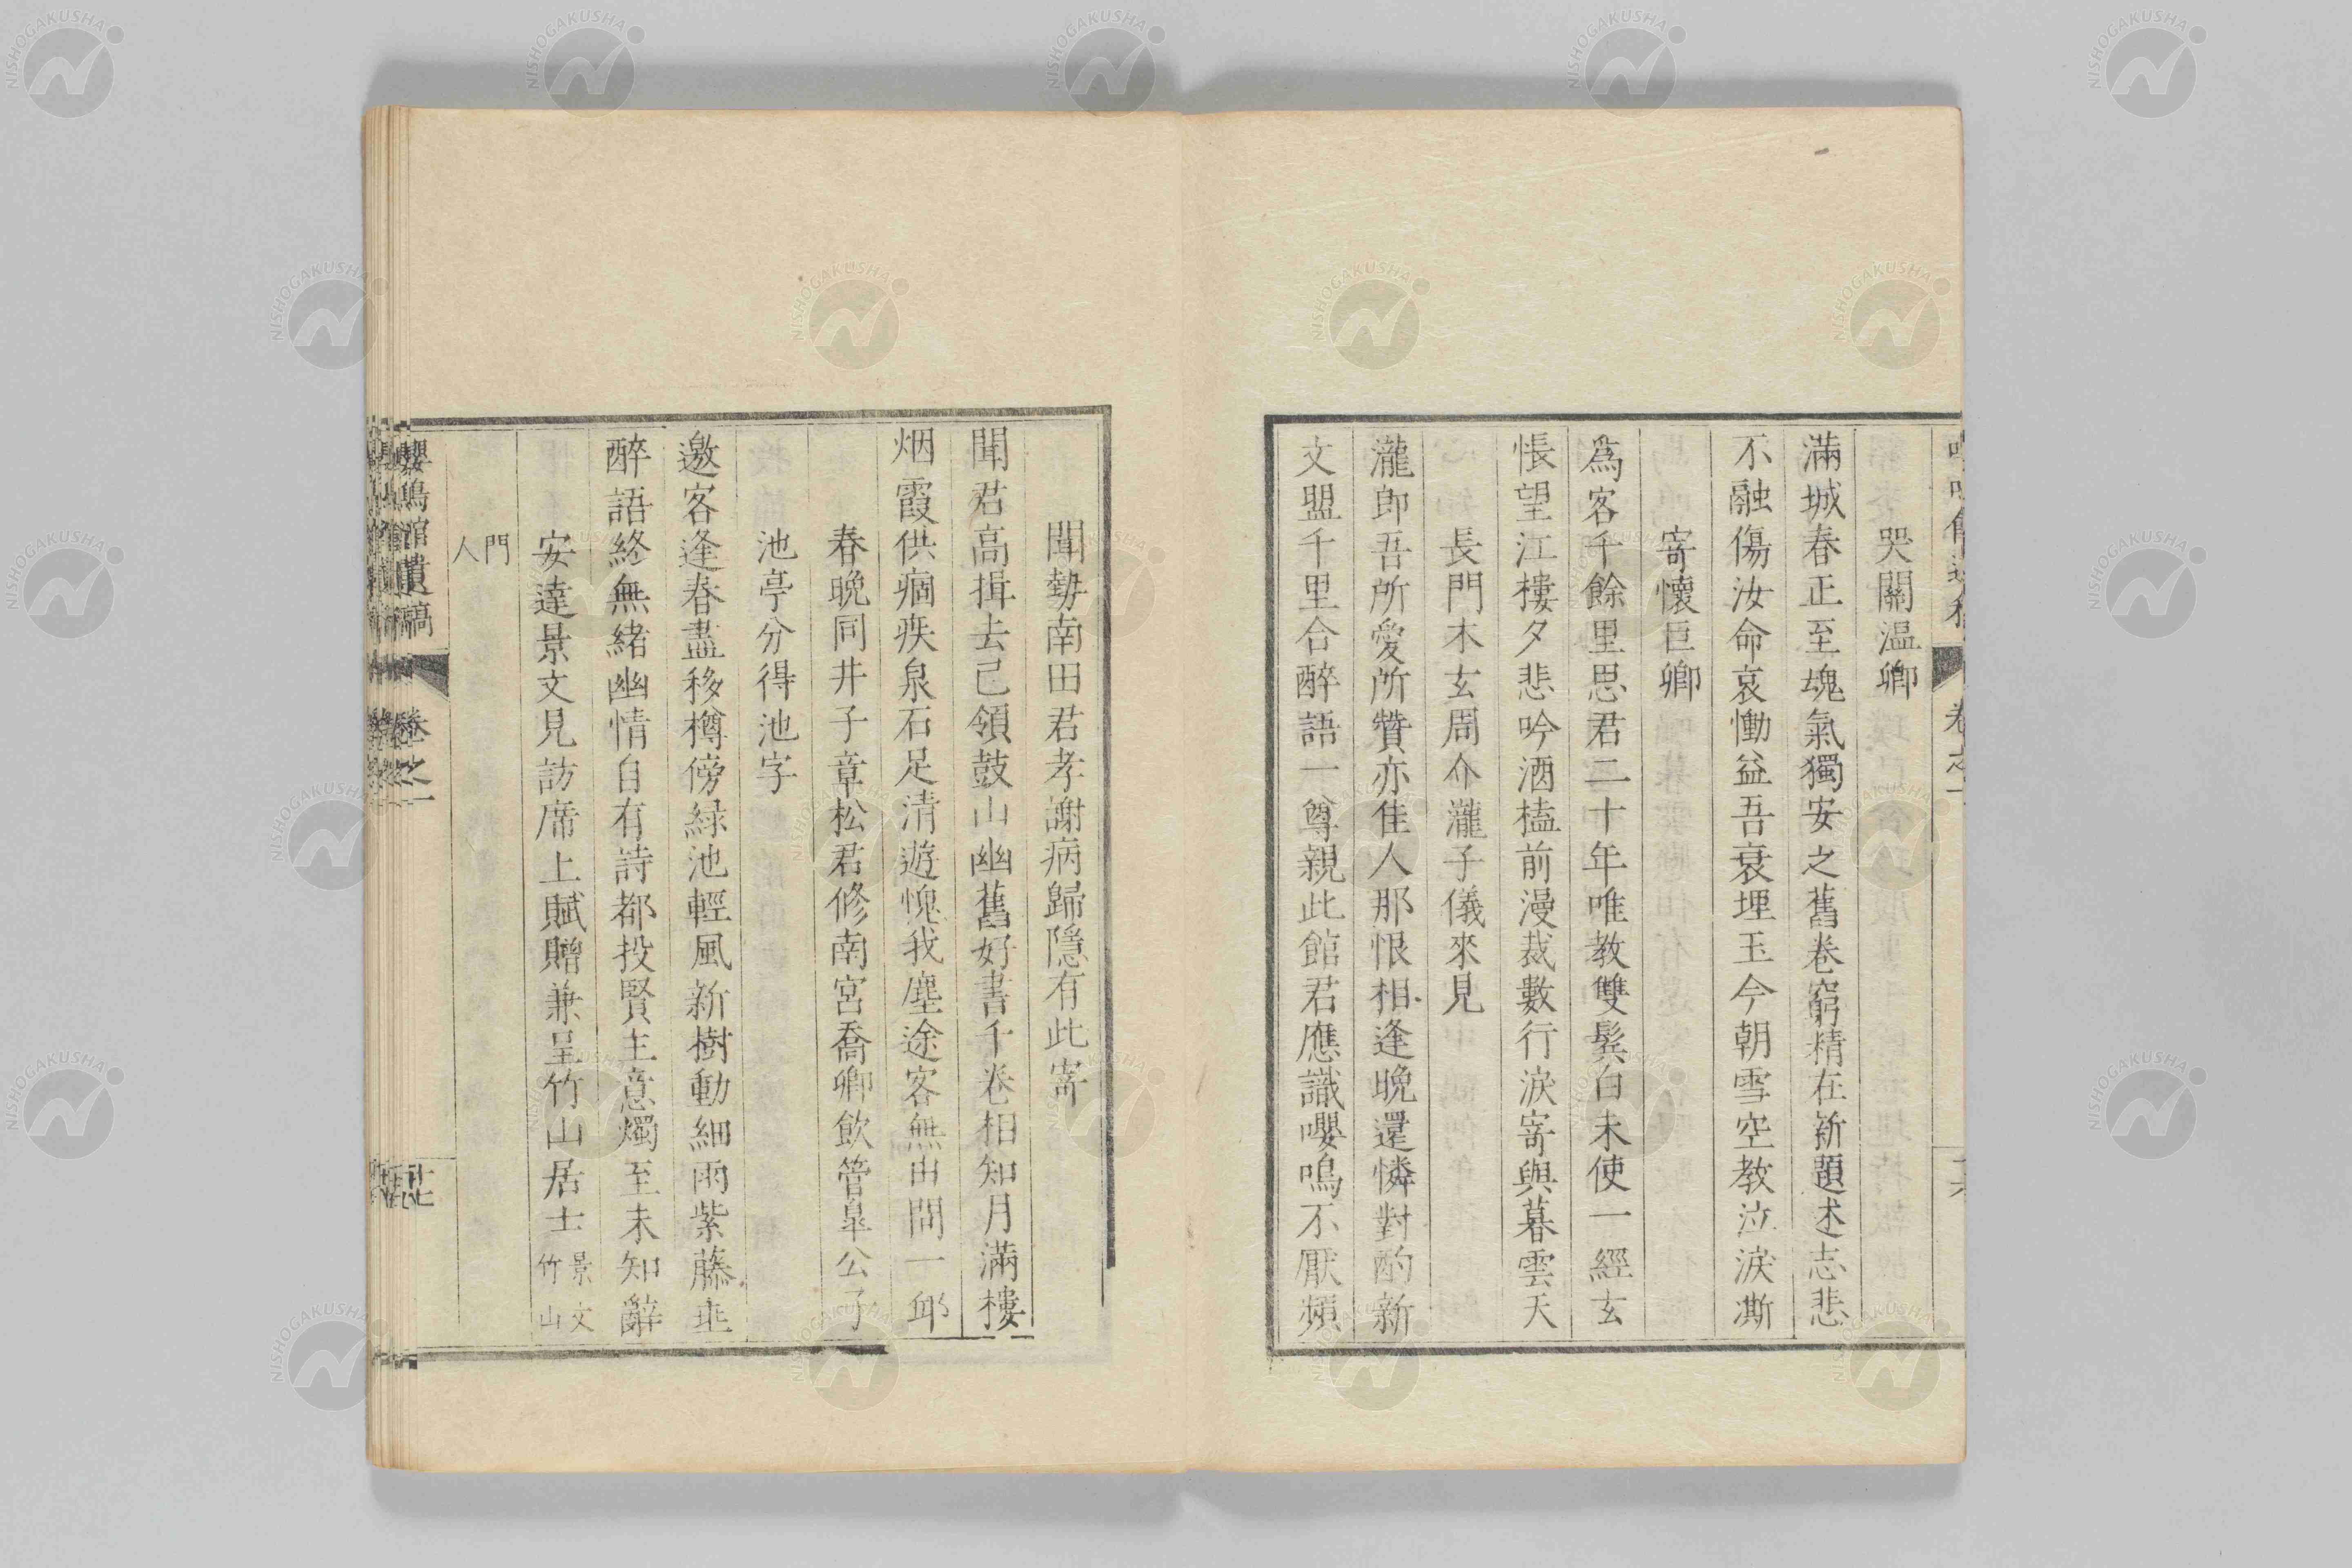 哭關温卿
滿城春正至魂氣獨安之舊卷窮精在新題述志悲
不融傷汝命哀慟益吾衰埋玉今朝雪空教泣淚凘
寄懷巨卿
為客千餘里思君二十年唯教雙鬂白未使一經玄
悵望江樓夕悲吟酒榼前漫裁數行淚寄與暮雲天
長門木玄周介瀧子儀來見
瀧郎吾所愛所贊亦佳人那恨相逢晚還憐對酌新
文盟千里合醉語一尊親此館君應識嚶鳴不厭頻
聞勢南田君孝謝病歸隱有此寄
聞君高揖去已領鼓山幽舊好書千卷相知月滿樓
烟霞供痼疾泉石足清遊愧我塵途客無由問一邱
春晚同井子章松君修南宮喬卿飲管皐公子
池亭分得池字
邀客逢春盡移樽傍緑池輕風新樹動細雨紫藤垂
醉語終無緒幽情自有詩都投賢主意燭至未知辭
安達景文見訪席上賦贈兼呈竹山居士 景文竹山
門人
嚶鳴館遺稿 卷之一 十七
NISHOGAKUSHA